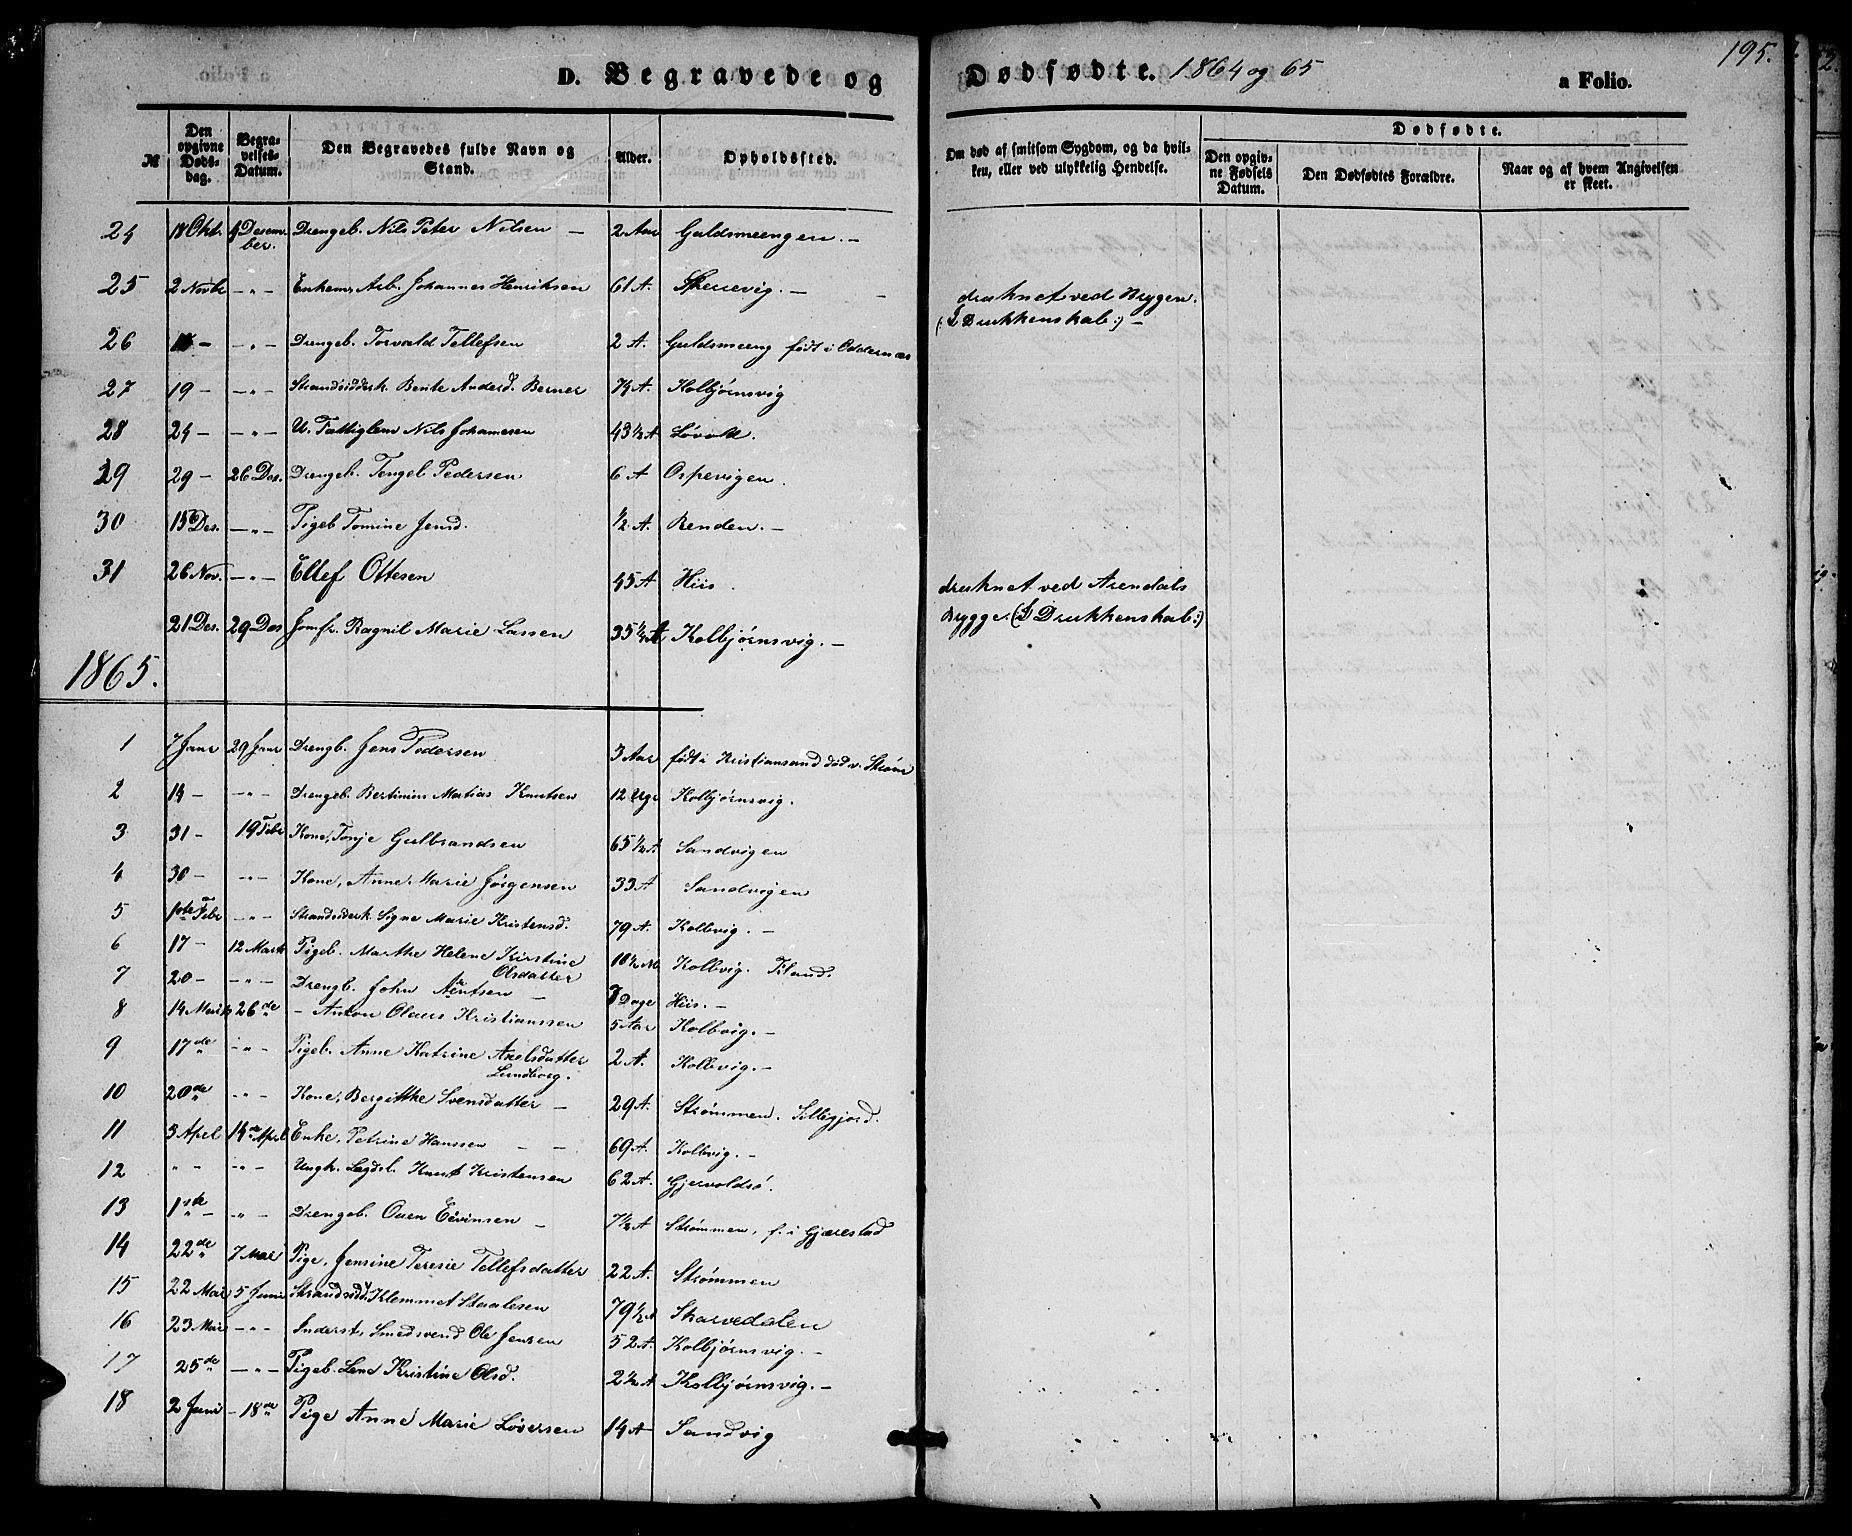 D. Begravede og Dødfødte. 1864 og 65 a Folio. 195.
№ Den opgivne Dødsdag. Begravelses-Datum. Den Begravedes fulde Navn og Stand. Alder. Opholdssted. Om død af smitsom Sygdom, og da hvilken, eller ved ulykkelig Hendelse. Dødfødte. Den opgivne Fødsels Datum. Den Dødfødtes Forældre. Naar og af hvem Angivelsen er skeet.
24 18 Okt. 4 Desember. Drengeb. Nils Peter Nilsen – 2 Aar Guldsmeengen. –
25 2 Novbr – " – Enkem. Arb. Johannes Henriksen 61 A. Skerevig. – druknet ved Bryggen.
(: I Drukkenskab:) –
26 – – " – Drengeb. Torvald Tellefsen 2 A. Guldsmeeng født i Oddernæs
27 19 – – " – Strandsidderk. Bente Andersd. Berner Kolbjørnsvig
28 24 – – " – U. Fattiglem Nils Johannesen 43 ½ A Løvold.
29 29 – 26 Des. Drengeb. Tengel Pedersen 6 A Ospevigen.
30 15 Des. – " – Pigeb Tomine Jensd. ½ A. Renden. –
31 26 Nov. – " – Ellef Ottesen 45 A Hiis. druknet ved Arendals
Brygge. (: I Drukkenskab:)
21 Des. 29 Des Jomfr. Ragnil Marie Lassen 35 ½ A Kolbjørnsvig. –
1865.
1 7 Janr 29 Janr Drengb. Jens Pedersen 3 Aar født i Kristiansand død v. Strøm
2 14 – – " – Drengeb. Bertinius Matias Knutsen 12 Ugr Kolbjørnsvig.
3 31 – 19 Febr Kone, Tonje Gulbrandsen 65 ½ A Sandvigen
4 30 – – " – Kone, Anne Marie Jørgensen 33 A Sandvigen
5 Febr – " – Strandsidderk Signe Marie Kristensd. 79 A. Kolbvig. –
6 17 – 12 Marts Pigeb. Marthe Helene Kirstine
Olsdatter Kolbvig.
7 20 – – " – Drengb. John Dage Hiis. –
8 14 Marts 26de – Anton Olaus Kristianssen 5 Aar Kolbvig. –
9 17de – " – Pigeb. Anne Katrine Axelsdatter
Lundborg. 2 A. Kolbvig. –
10 20de – " – Kone, Bergitthe Svensdatter – 29 A. Strømmen.
11 3 Apel 14de Apel Enke, Petrine Hanssen – – 69 A. Kolbvig. –
12 " – " – " – Ungk. Lægdsl. Knut Kristensen 62 A. Gjervoldsø.
13 1ste – – " – Drengeb. Oven Eivinsen – 7 ½ A Strømmen, f. i Gjærestad
14 22de 7 Mai Pige, Jensine Teresie Tellefsdatter 22 A. Strømmen
15 22 Mai 5 Juni Strandsidd. Klemmet Staalesen 79 ½ A Skarvedalen
16 23 Mai – " – Inderst, Smedsvend Ole Jensen 52 A. Kolbjørnsvig. –
17 25de – " – Pigeb. Lene Kristine Olsd. 2 ½ A Kolbjørnsvig. –
18 2 Juni – 18de Pige Anne Marie Løversen 14 A – Sandvig